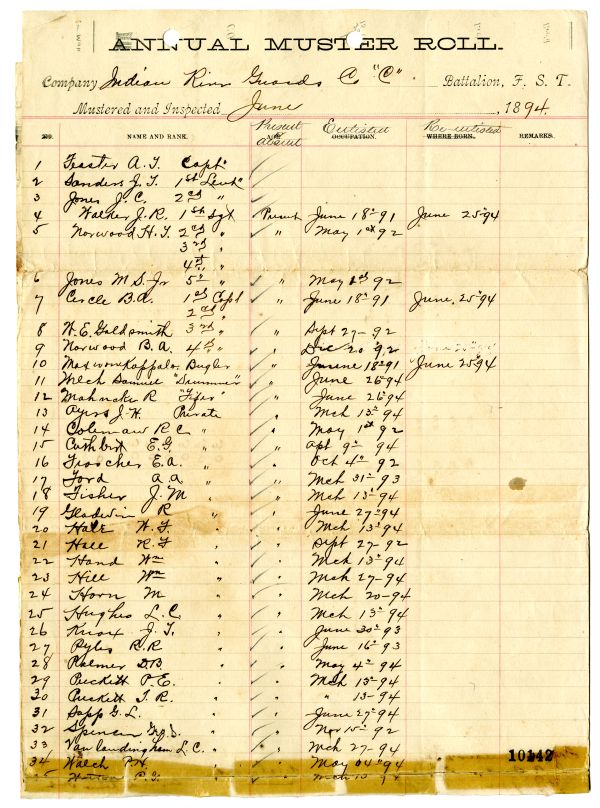 ANNUAL MUSTER ROLL.
Company Indian River Guards Co "C". Battalion, F. S. T.
Mustered and Inspected June, 1894.
Present Enlisted Re-enlisted
absent
NO. NAME AND RANK. AGE OCCUPATION. WHERE BORN. REMARKS.
1 Feaster A. J. Capt
2 Sanders J. T. 1st Lieut
3 Jones J. C. 2nd "
4 Walker J. R. 1st Sgt Present June 18" 91 June 25" 94
5 Norwood H. T. 2nd " " May 1st 92
3rd "
4th "
6 Jones M. S. Jr 5th " " May 1st 92
7 Circle B. A. 1st Corpl " June 18" 91 June, 25" 94
2nd "
8 W. E. Goldsmith 3rd " Sept 27 - 92
9 Norwood B. A. 4th " Dec 20" 92
10 Bugler " June 18" 91 June 25" 94
11 Welch Samuel "Drummer" " June 26" 94
12 R "Fifer" " June 26" 94
13 Ayrs J. H. Private Mch 13" 94
14 Coleman R C " May 1st 92
15 Cuthbert E. G. " Apl 9" 94
16 E. A. " Oct 4" 92
17 Ford A. A. " Mch 31" 93
18 Fisher J. M " Mch 13" 94
19 Gladwin R " June 27" 94
20 Hale W. F " Mch 13" 94
21 Hall R. F " Sept 27 - 92
22 Hand Wm " Mch 13" 94
23 Hill Wm " Mch 27 - 94
24 Horn M " Mch 20 - 94
25 Hughes L. C. " Mch 13" 94
26 Knox J. T. " June 30" 93
27 Pyles R. R " June 16" 93
28 Palmer D. B. " May 4" 94
29 Puckett P. E. " Mch 13" 94
30 Puckett T. R. " " 13 - 94
31 Sapp G. L. " June 27" 94
32 Spencer " Nov 15" 92
33 Van landingham L. C. " Mch 27 - 94
10142
34 Walch P. H. " May 04" 94
P. G.